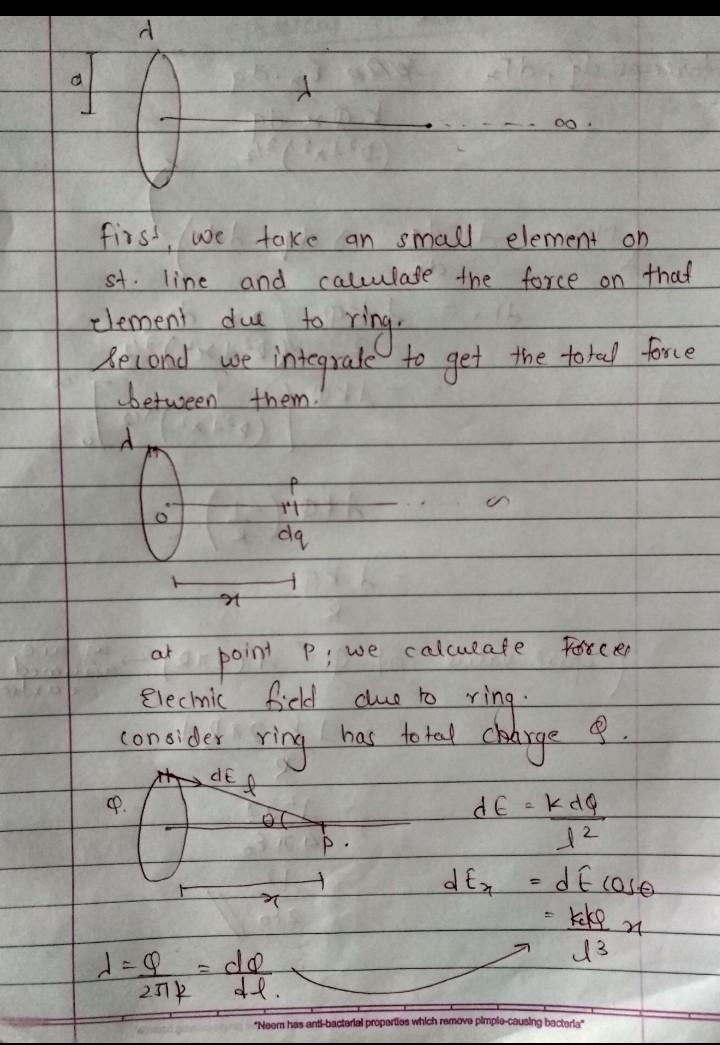 λ
a
λ
∞.
first, we take an small element on
st. line and calculate the force on that
element due to ring.
Second we integrate to get the total force
between them.
λ
P
O
dq
x
at point P, we calculate
Electric field due to ring.
consider ring has total charge Q.
dE l
Q. θ dE = k dQ / l²
P.
x dEx = dE cosθ
= x / l³
λ = Q / 2πR = dQ / dl.
"Neem has anti-bacterial properties which remove pimple-causing bacteria"